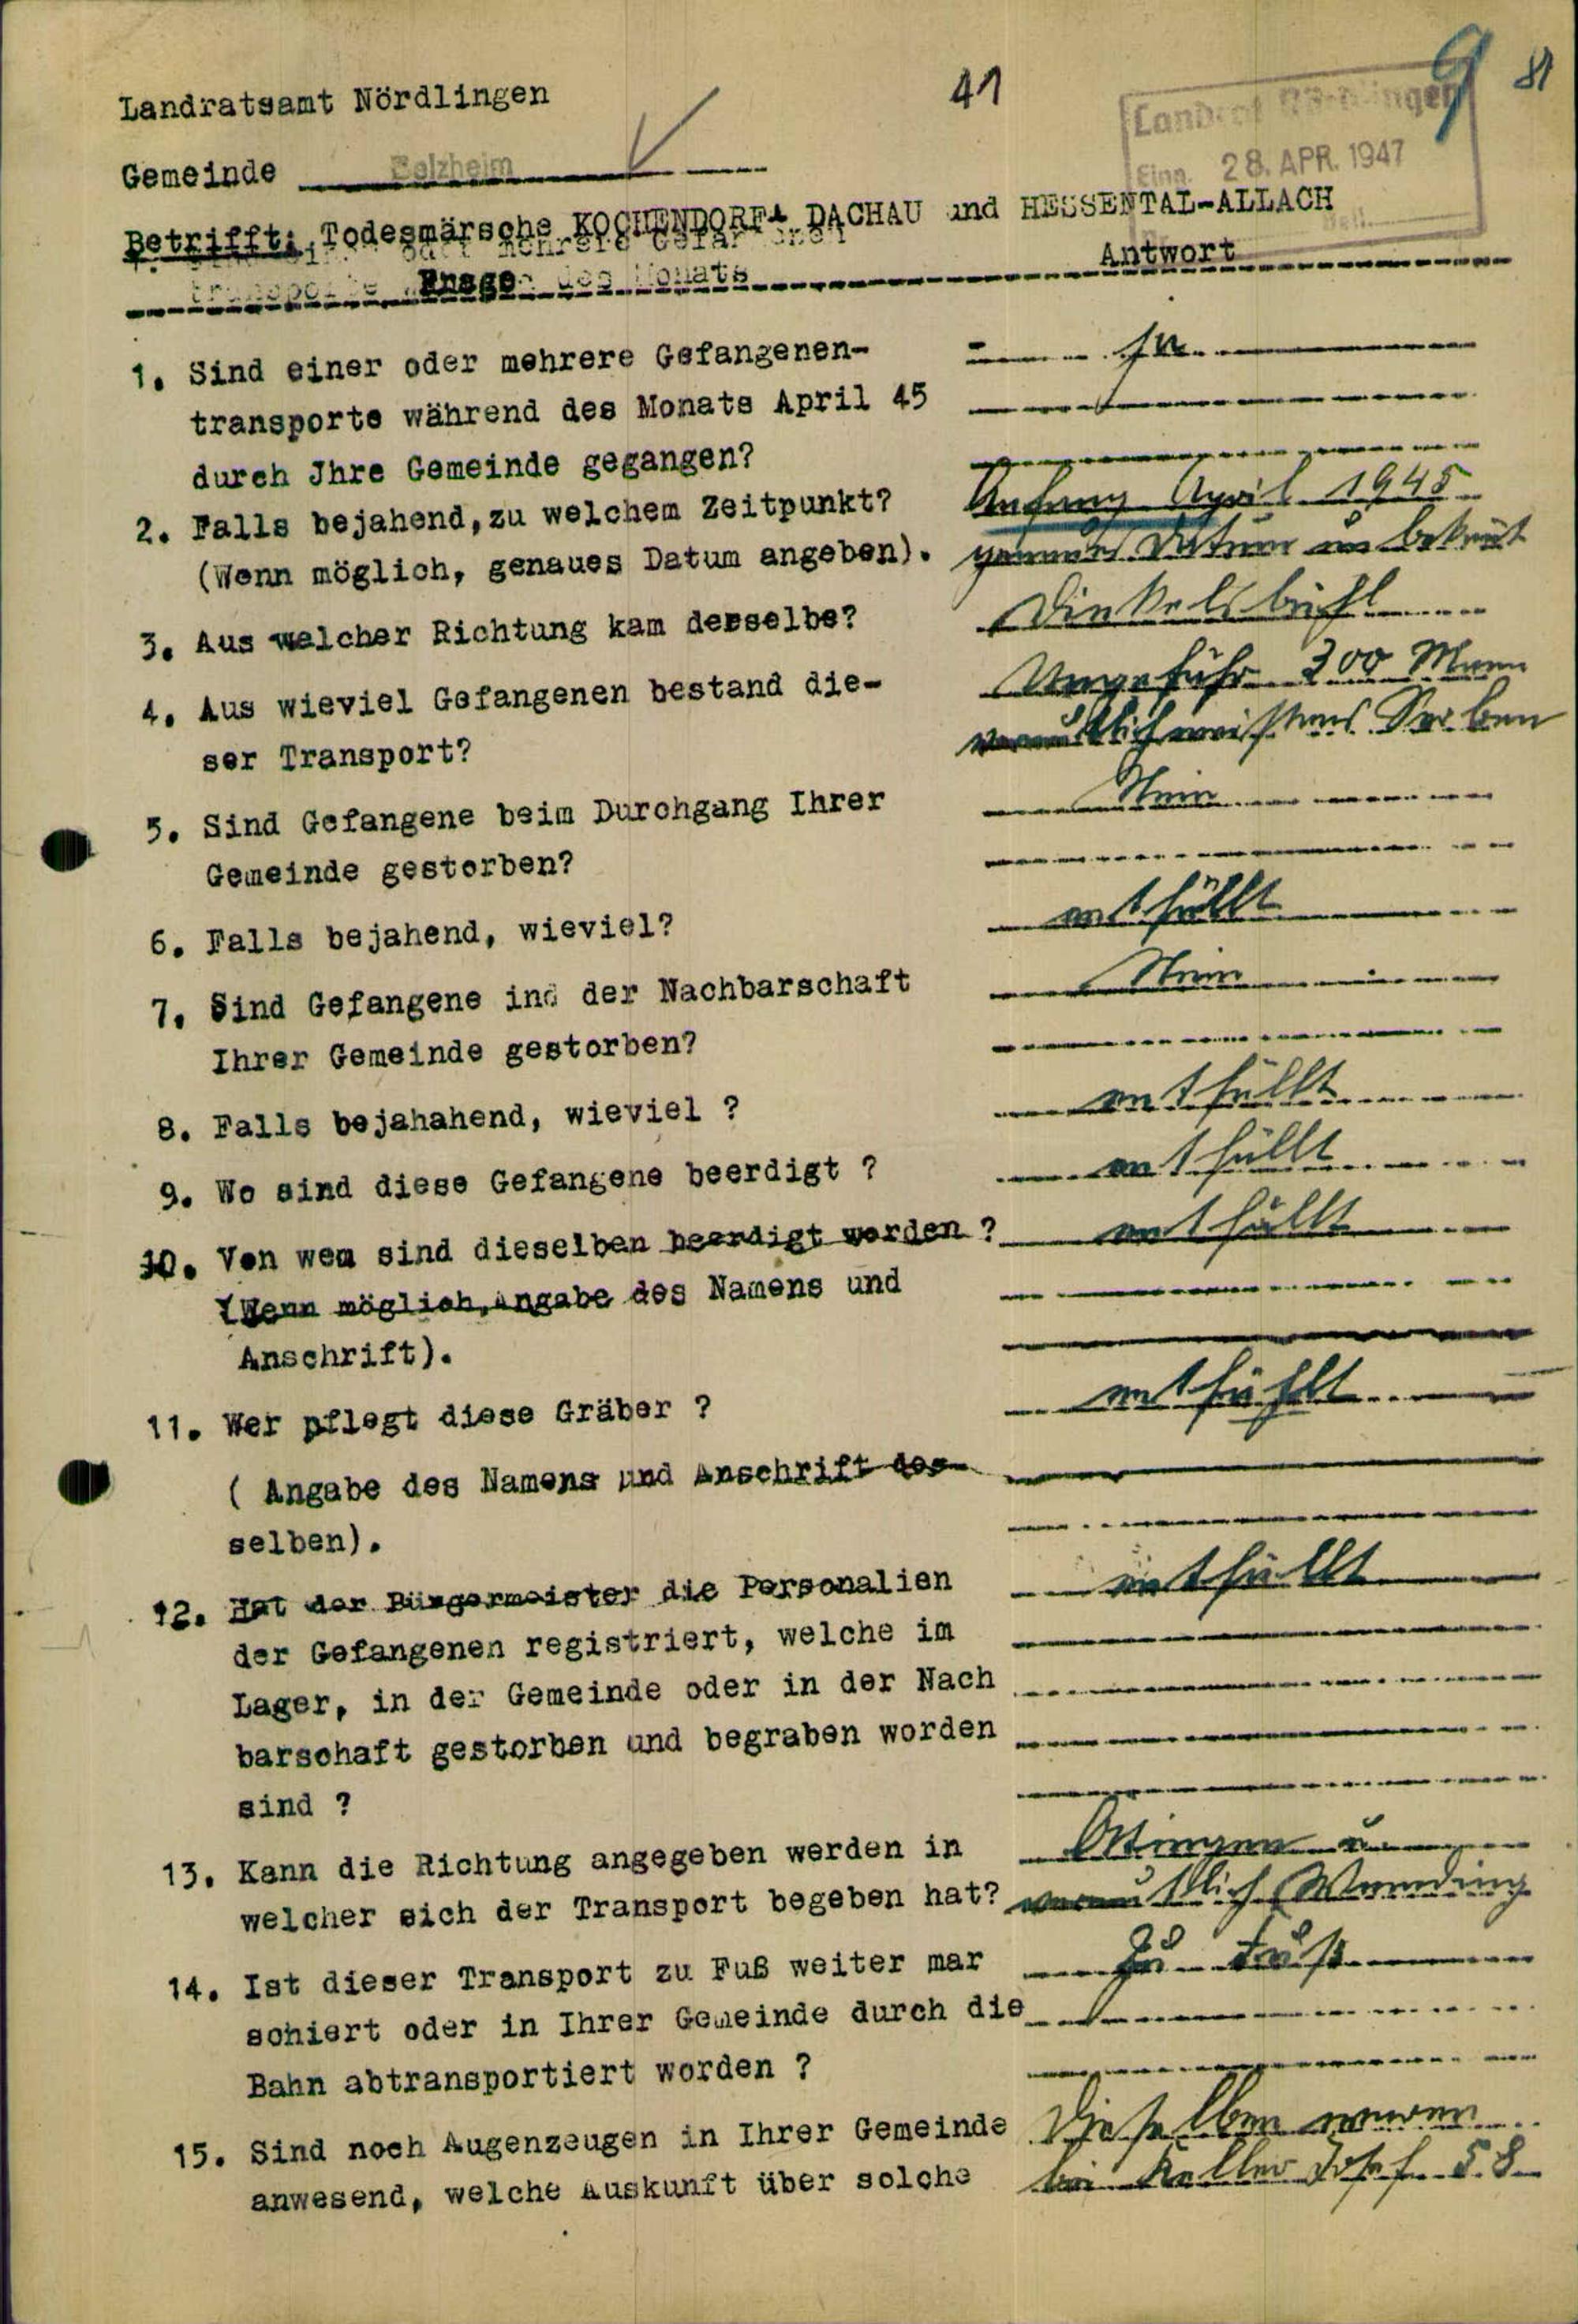 41
9
81
Landratsamt Nördlingen
Landrat Nördlingen
Eing. 28. APR. 1947
Gemeinde Belzheim
Betrifft: Todesmärsche KOCHENDORF- DACHAU und HESSENTAL-ALLACH
oder mehrere Gefangenen
transporte des Monats
Frage
Antwort
1. Sind einer oder mehrere Gefangenen-
ja
transporte während des Monats April 45
durch Jhre Gemeinde gegangen?
2. Falls bejahend, zu welchem Zeitpunkt?
Anfang April 1945
(Wenn möglich, genaues Datum angeben).
genaues Datum un bekant
3. Aus welcher Richtung kam derselbe?
Dinkelsbühl
4. Aus wieviel Gefangenen bestand die-
Ungefähr 300 Mann
ser Transport?
vermutlich meistens Serben
5. Sind Gefangene beim Durchgang Ihrer
Nein
Gemeinde gestorben?
6. Falls bejahend, wieviel?
entfällt
7. Sind Gefangene ind der Nachbarschaft
Nein
Ihrer Gemeinde gestorben?
8. Falls bejahahend, wieviel ?
entfällt
9. Wo sind diese Gefangene beerdigt ?
entfällt
10. Von wem sind dieselben beerdigt worden ?
entfällt
(Wenn möglich, Angabe des Namens und
Anschrift).
11. Wer pflegt diese Gräber ?
entfählt
( Angabe des Namens und Anschrift des-
selben).
12. Hat der Bürgermeister die Personalien
entfällt
der Gefangenen registriert, welche im
Lager, in der Gemeinde oder in der Nach
barschaft gestorben und begraben worden
sind ?
13. Kann die Richtung angegeben werden in
Öttingen u.
welcher sich der Transport begeben hat?
vermutlich Wemding
14. Ist dieser Transport zu Fuß weiter mar
zu Fuß
schiert oder in Ihrer Gemeinde durch die
Bahn abtransportiert worden ?
15. Sind noch Augenzeugen in Ihrer Gemeinde
Dieselben waren
anwesend, welche Auskunft über solche
bei Keller Josef 58